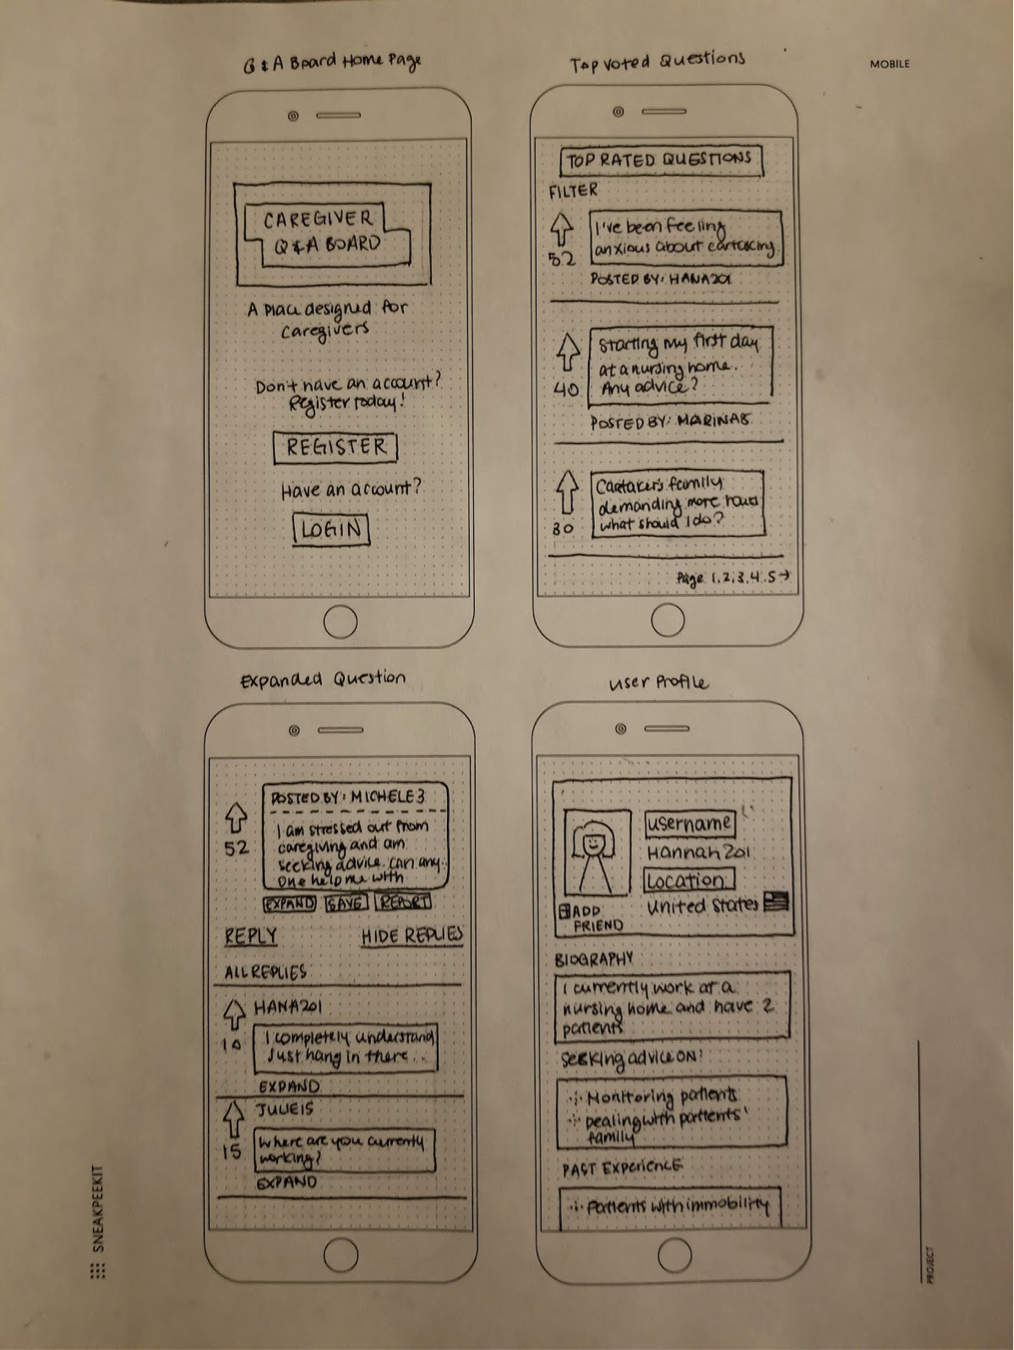 Q & A Board Home Page
CAREGIVER
Q & A BOARD
A place designed for
caregivers
Don't have an account?
Register today!
REGISTER
Have an account?
LOGIN
Top Voted Questions
MOBILE
TOP RATED QUESTIONS
FILTER
I've been feeling
anxious about
52
POSTED BY: HANA201
Starting my first day
at a nursing home.
Any advice?
40
POSTED BY: MARINA8
family
demanding more
what should I do?
30
Page 1.2.3.4.5→
Expanded Question
POSTED BY: MICHELE3
52
I am stressed out from
caregiving and am
seeking advice. can any
one help me with
EXPAND SAVE REPORT
REPLY HIDE REPLIES
ALL REPLIES
HANA201
10
I completely understand
Just hang in there...
EXPAND
15
Where are you currently
working?
EXPAND
User Profile
username
Hannah201
Location
United States
ADD
FRIEND
BIOGRAPHY
I currently work at a
nursing home and have 2
patients
Seeking advice ON:
Monitoring patients
Dealing with patients'
family
PAST Experience
Patients with immobility
SNEAKPEEKIT
PROJECT